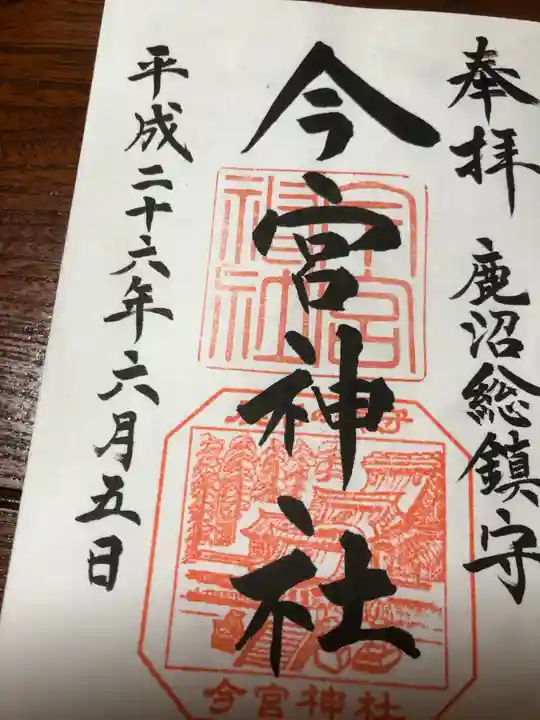 奉拝 鹿沼総鎮守
今宮神社
平成二十六年六月五日
今宮神社
今宮神社